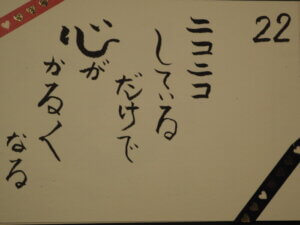 22
ニコニコ
している
だけで
心が
かるく
なる